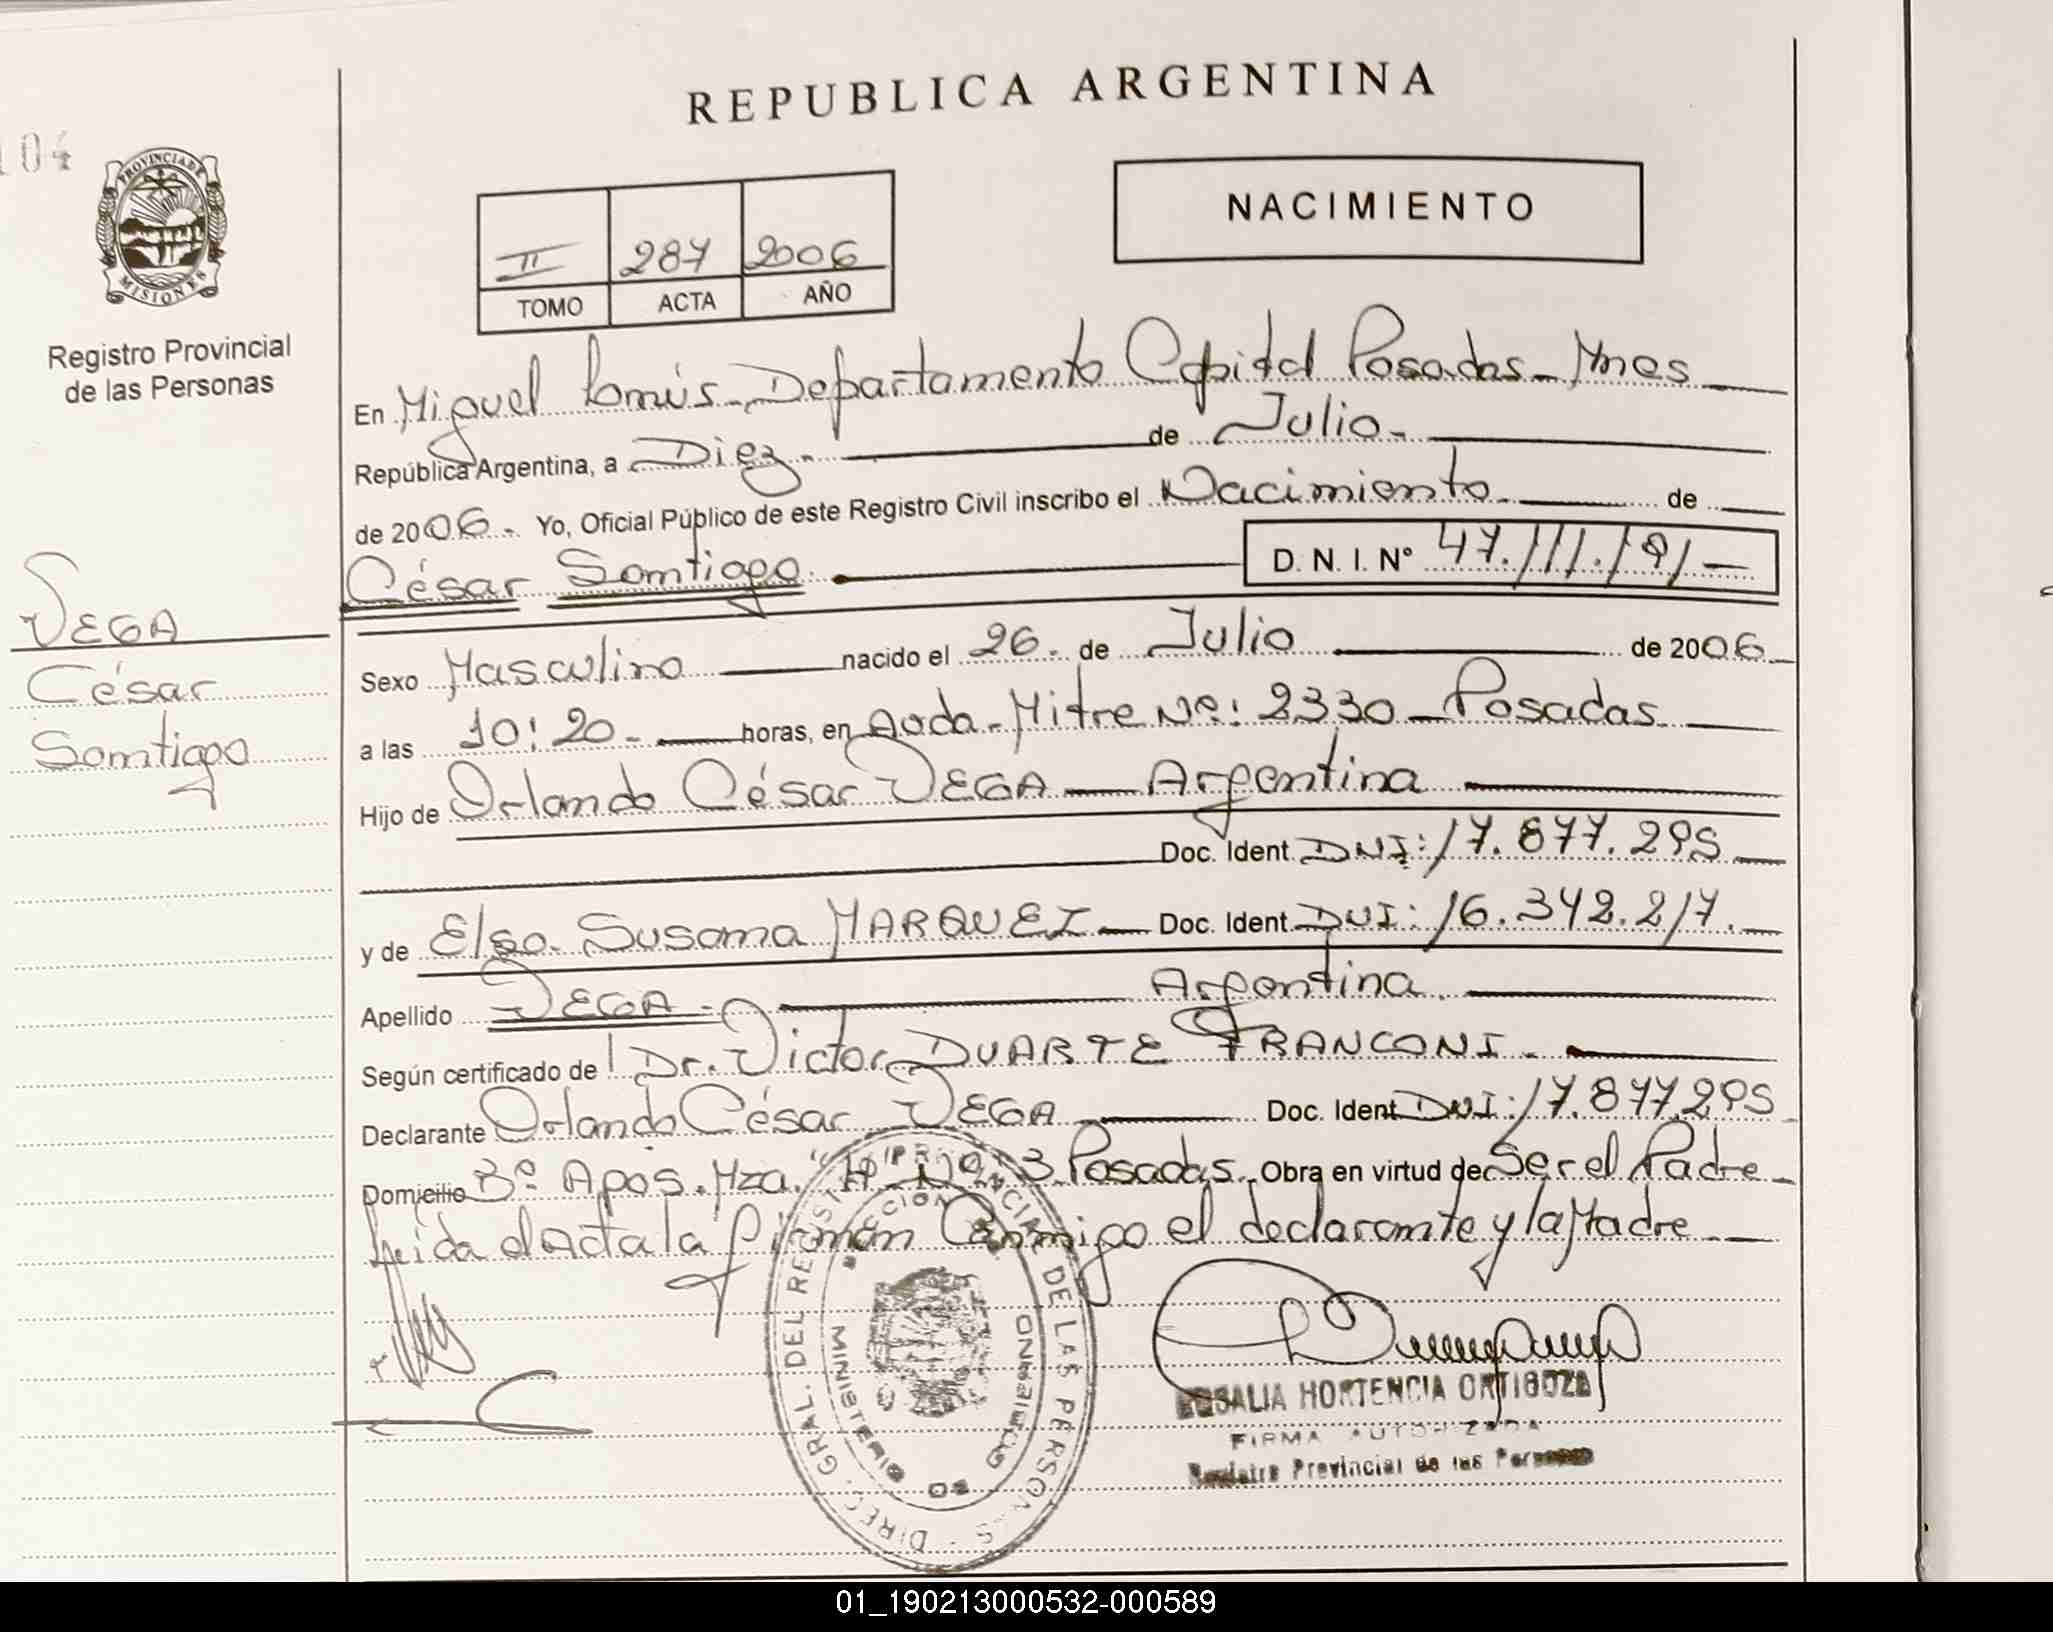 REPUBLICA ARGENTINA
104
PROVINCIA DE
MISIONES
Registro Provincial
de las Personas
II 287 2006
TOMO ACTA AÑO
NACIMIENTO
En Miguel Lanús - Departamento Capital Posadas - Mnes
República Argentina, a Diez - de Julio -
de 2006 - Yo, Oficial Público de este Registro Civil inscribo el Nacimiento - de
César Santiago. D. N. I. Nº 47.111.191 -
VEGA
César
Santiago
Sexo Masculino nacido el 26 - de Julio de 2006
a las 10:20 - horas, en Avda. Mitre Nº: 2330 - Posadas
Hijo de Orlando César VEGA - Argentina
Doc. Ident. DNI: 17.877.295
y de Elsa Susana MARQUEZ - Doc. Ident. DNI: 16.342.217.
Apellido VEGA - Argentina.
Según certificado de Dr. Victor DUARTE FRANCONI -
Declarante Orlando César VEGA Doc. Ident. DNI: 17.877.295
Domicilio Bº Apos. Mza. 3 Posadas. Obra en virtud de Ser el Padre
Leida el Acta la firman Conmigo el declarante y la Madre
DIREC. GRAL. DEL REGISTRO PROVINCIAL DE LAS PERSONAS
MINISTERIO DE GOBIERNO
ROSALIA HORTENCIA ORTIGOZA
FIRMA AUTORIZADA
Registro Provincial de las Personas
01_190213000532-000589